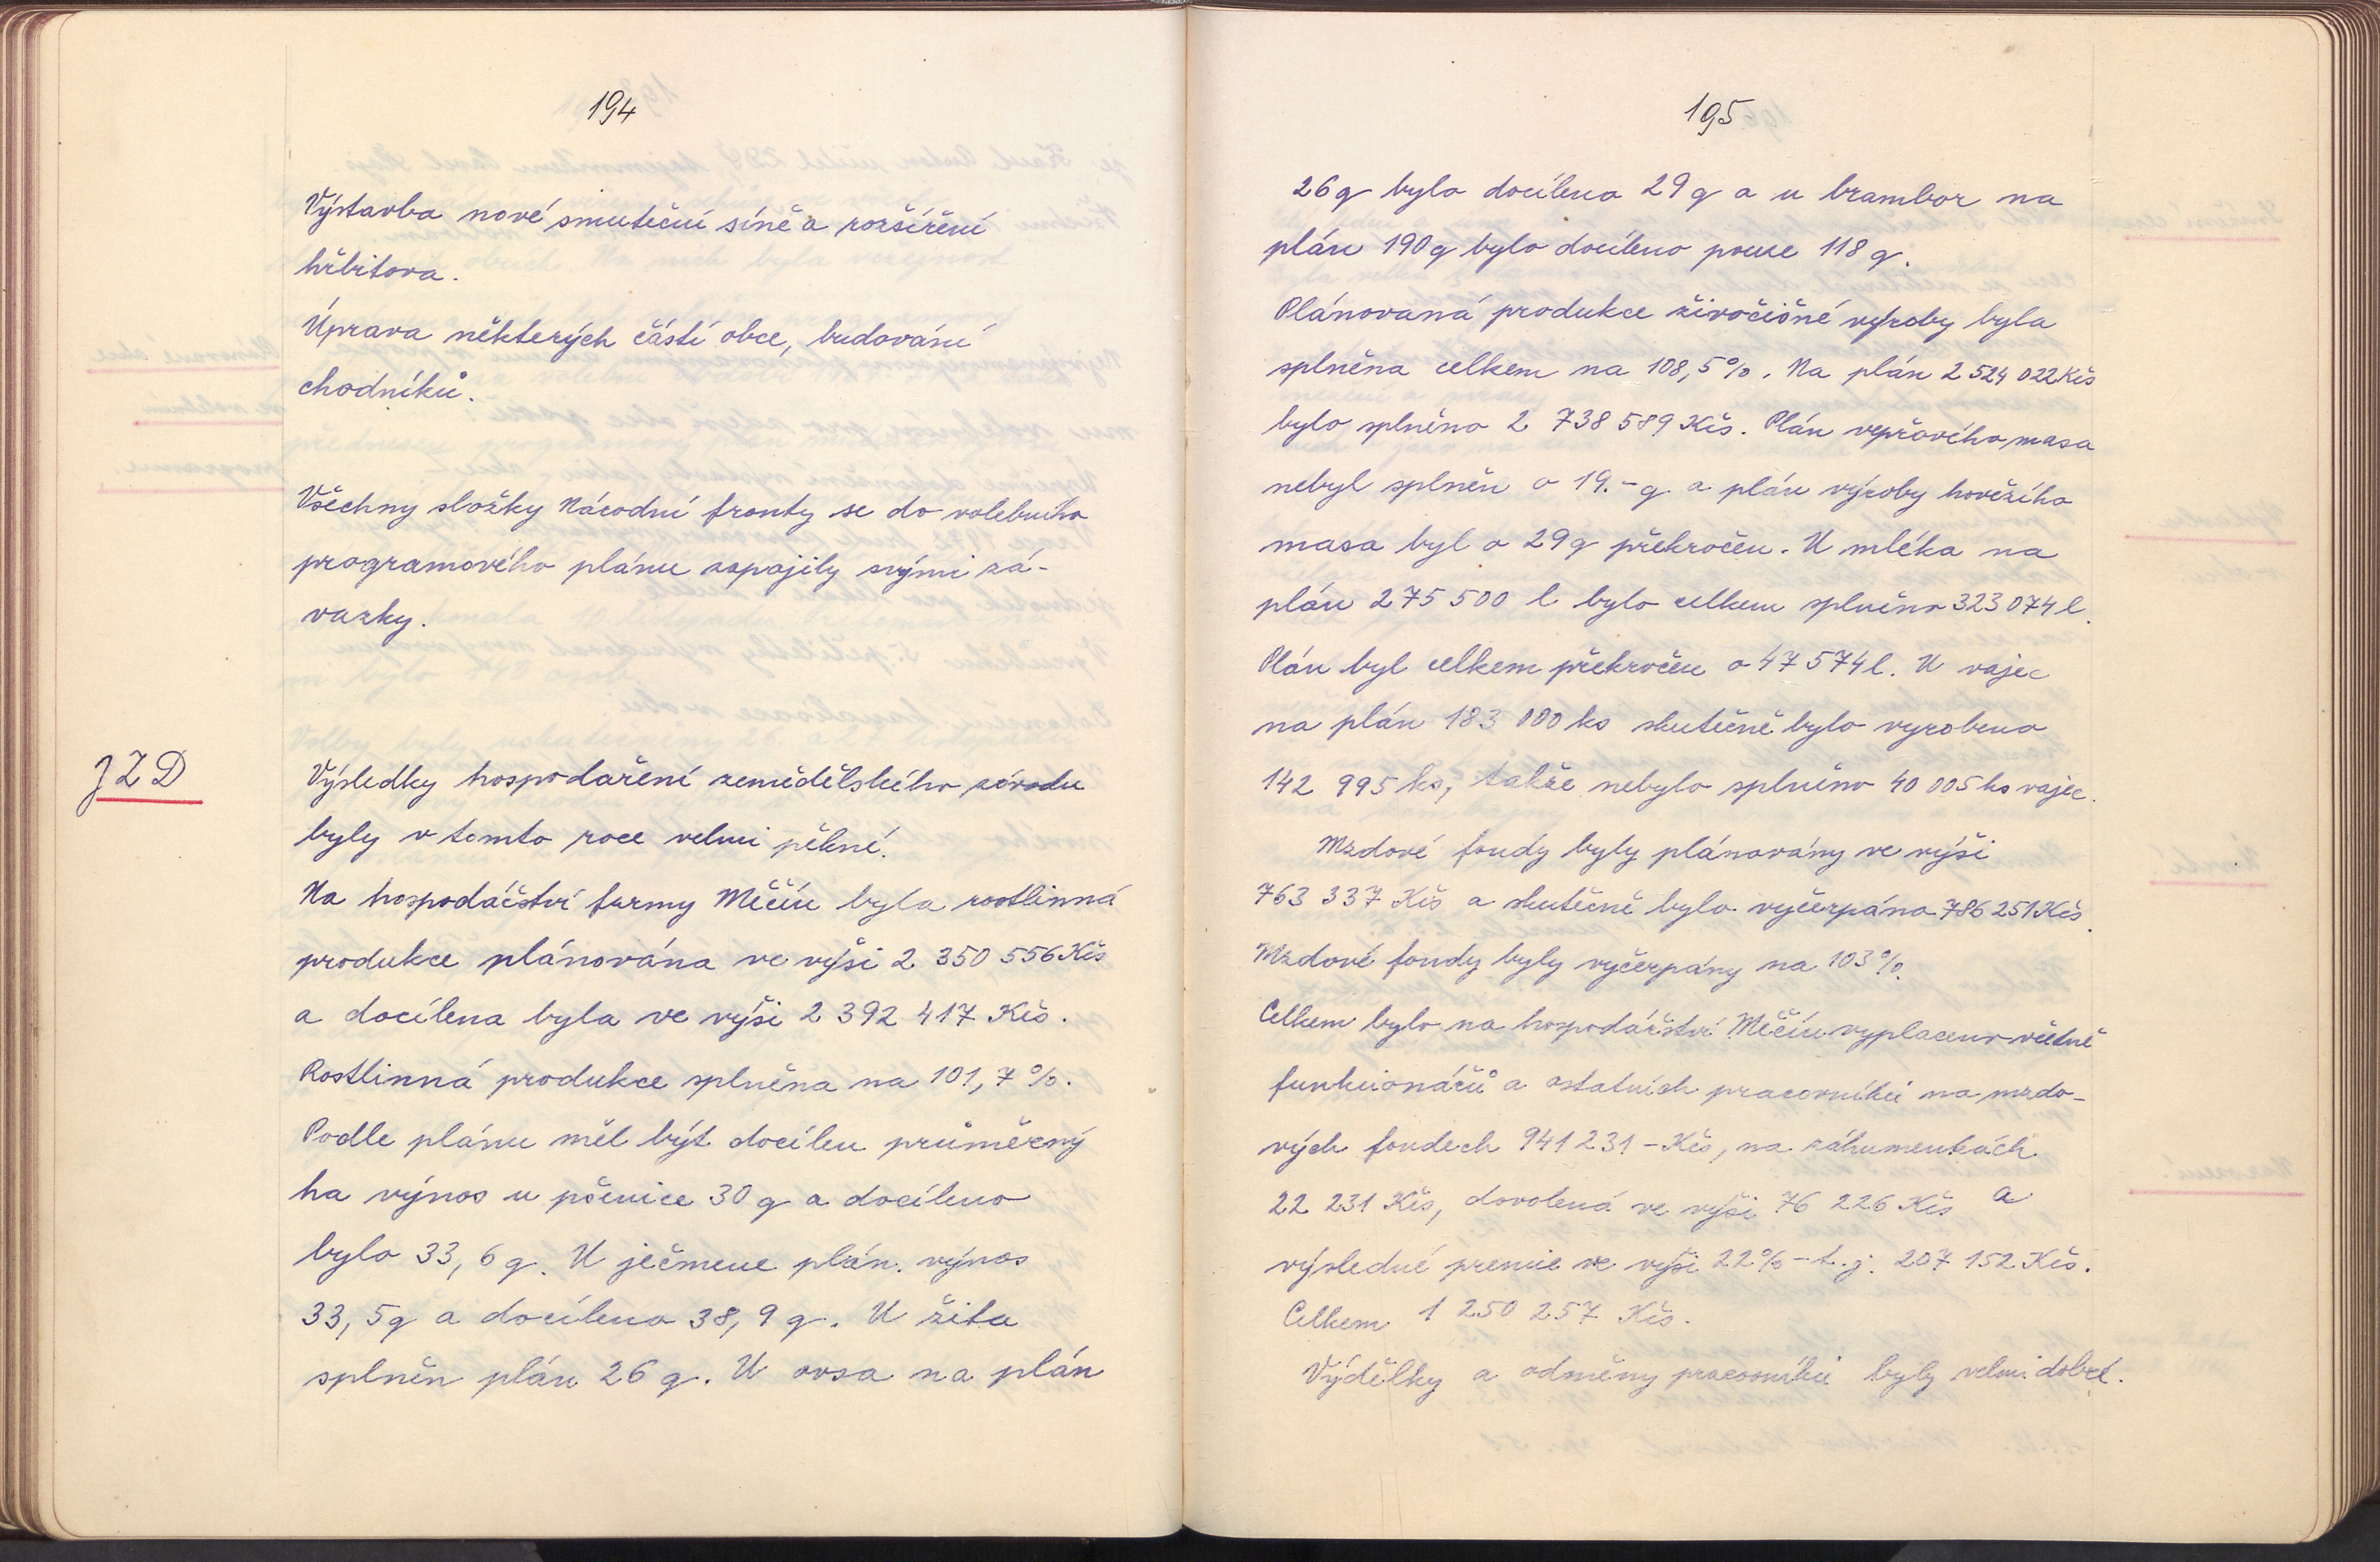 194
Výstavba nové smuteční síně a rozšíření
hřbitova.
Úprava některých částí obce, budování
chodníků.
Všechny složky Národní fronty se do volebního
programového plánu zapojily svými zá-
vazky.
JZD
Výsledky hospodaření zemědělského závodu
byly v tomto roce velmi pěkné.
Na hospodářství farmy Měčín byla rostlinná
produkce plánována ve výši 2 350 556 Kčs
a docílena byla ve výši 2 392 417 Kčs.
Rostlinná produkce splněna na 101,7 %.
Podle plánu měl být docílen průměrný
ha výnos u pšenice 30 q a docíleno
bylo 33,6 q. U ječmene plán. výnos
33,5 q a docíleno 38,9 q. U žita
splněn plán 26 q. U ovsa na plán
195
26 q bylo docíleno 29 q a u brambor na
plán 190 q bylo docíleno pouze 118 q.
Plánovaná produkce živočišné výroby byla
splněna celkem na 108,5 %. Na plán 2 524 022 Kčs
bylo splněno 2 738 589 Kčs. Plán vepřového masa
nebyl splněn o 19.- q a plán výroby hovězího
masa byl o 29 q překročen. U mléka na
plán 275 500 l bylo celkem splněno 323 074 l.
Plán byl celkem překročen o 47 574 l. U vajec
na plán 183 000 ks skutečně bylo vyrobeno
142 995 ks, takže nebylo splněno 40 005 ks vajec.
Mzdové fondy byly plánovány ve výši
763 337 Kčs a skutečně bylo vyčerpáno 786 251 Kčs.
Mzdové fondy byly vyčerpány na 103 %.
Celkem bylo na hospodářství Měčín vyplaceno včetně
funkcionářů a ostatních pracovníků na mzdo-
vých fondech 941 231 - Kčs, na záhumenkách
22 231 Kčs, dovolená ve výši 76 226 Kčs a
výsledné premie ve výši 22 % - t. j. 207 152 Kčs.
Celkem 1 250 257 Kčs.
Výdělky a odměny pracovníků byly velmi dobré.